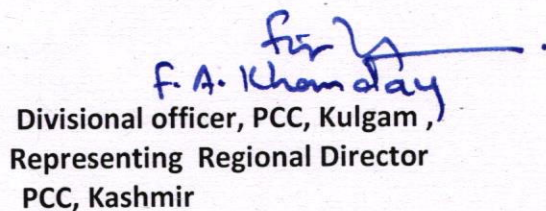 F. A. Khanday
Divisional officer, PCC, Kulgam ,
Representing Regional Director
PCC, Kashmir